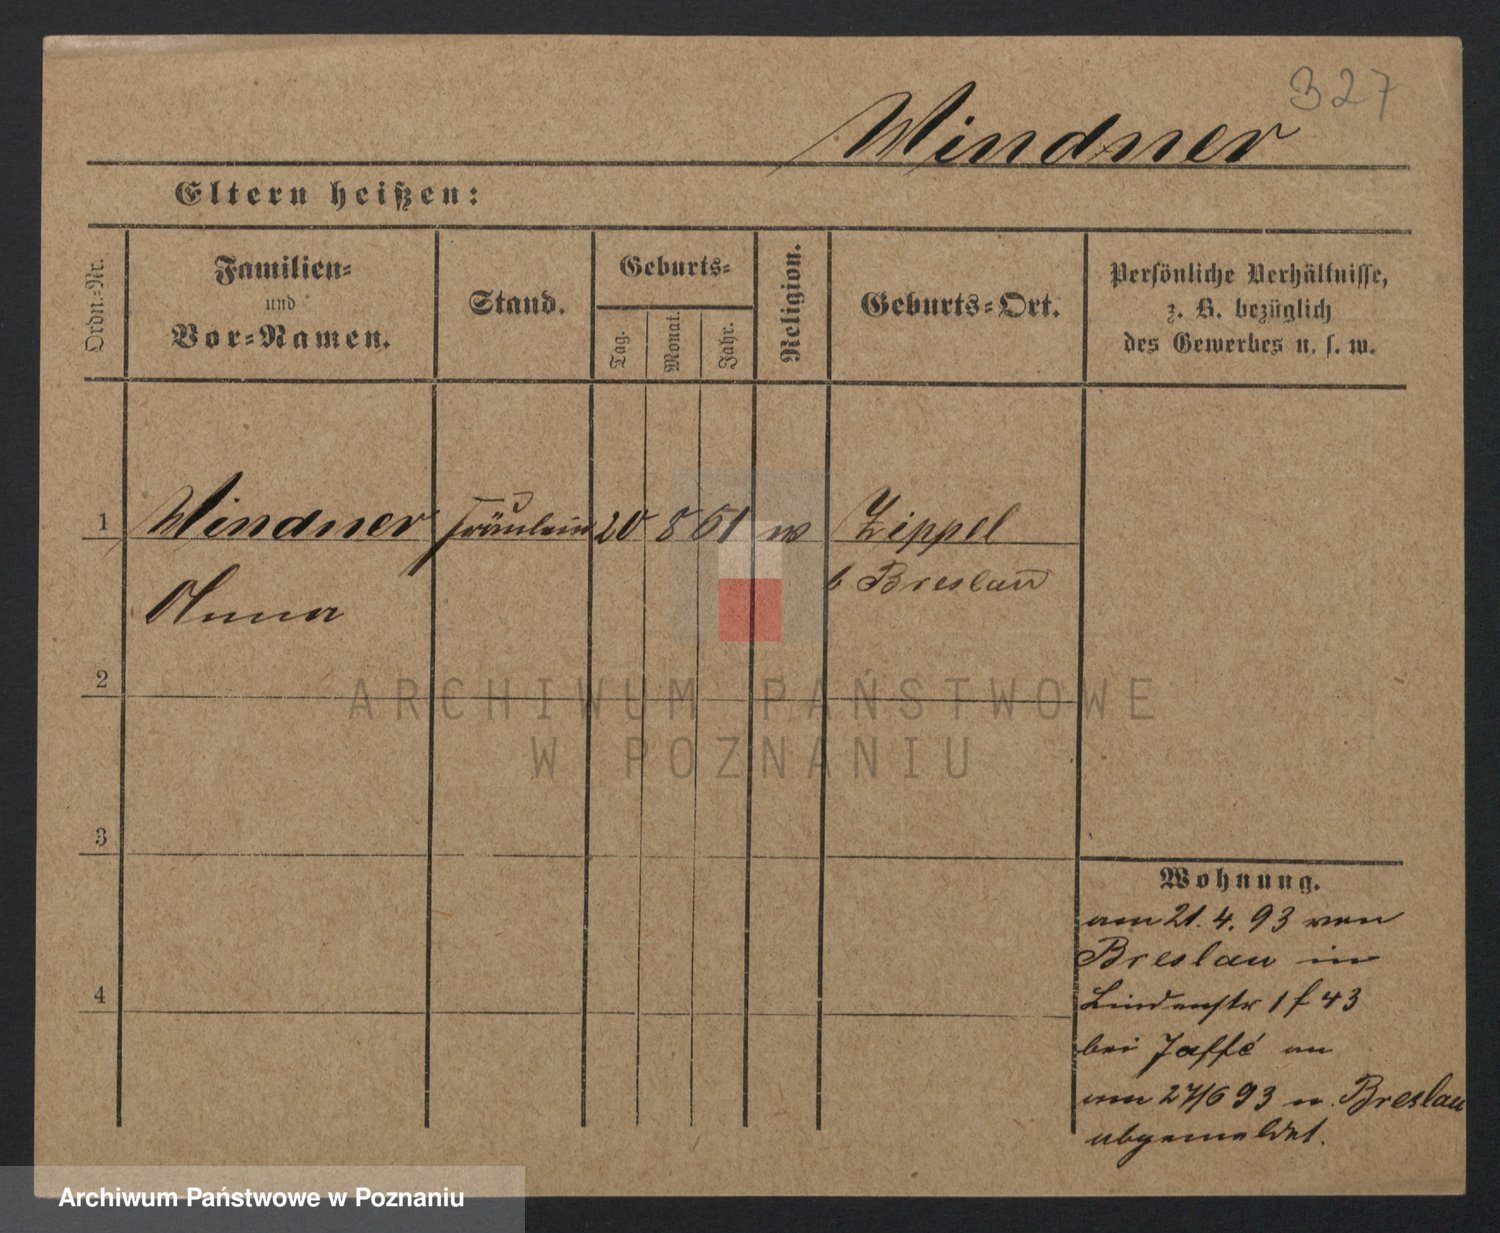 327
Windner
Eltern heißen:
Ordn.-Nr.
Familien-
und
Vor-Namen.
Stand.
Geburts-
Tag.
Monat.
Jahr.
Religion.
Geburts-Ort.
Persönliche Verhältnisse,
z. B. bezüglich
des Gewerbes u. s. w.
1 Windner Fräulein 20 8 61 Zippel
Anna b Breslau
2
3
4
Wohnung.
am 21. 4. 93 von
Breslau in
Lindenstr 1 f 43
bei Jaffé an
am 27/6 93 n. Breslau
abgemeldet.
ARCHIWUM PAŃSTWOWE
W POZNANIU
Archiwum Państwowe w Poznaniu